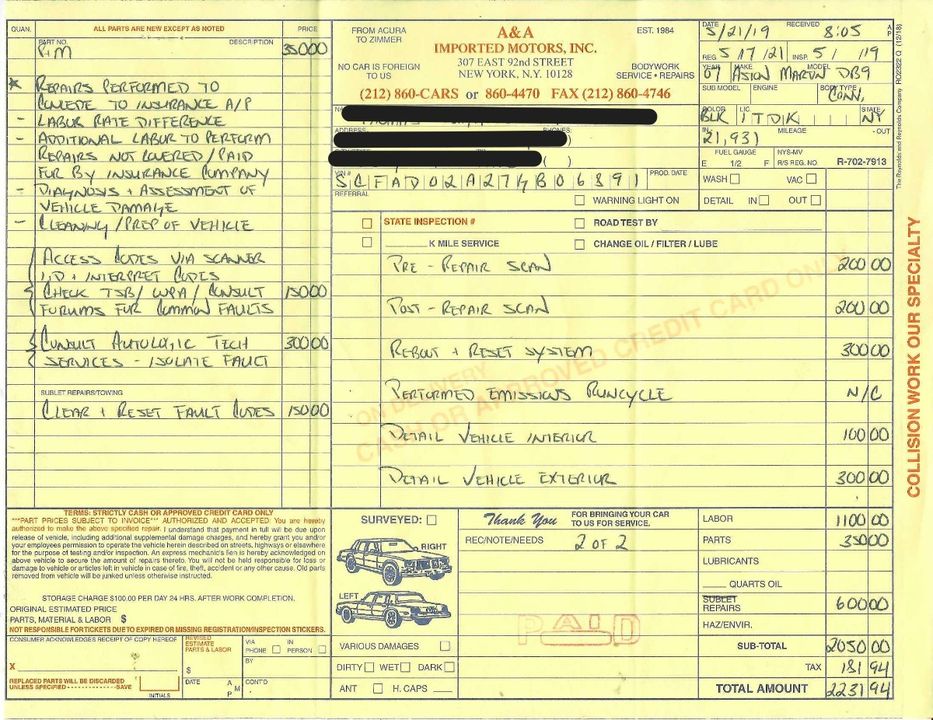 QUAN. ALL PARTS ARE NEW EXCEPT AS NOTED PRICE
PART NO. DESCRIPTION
P+M 350 00
* REPAIRS PERFORMED TO
CONCEDE TO INSURANCE A/P
- LABOR RATE DIFFERENCE
- ADDITIONAL LABOR TO PERFORM
REPAIRS NOT COVERED/PAID
FOR BY INSURANCE COMPANY
- DIAGNOSIS + ASSESSMENT OF
VEHICLE DAMAGE
- CLEANING/PREP OF VEHICLE
ACCESS CODES VIA SCANNER
I.D + INTERPRET CODES
CHECK TSB/ WPA/ CONSULT 150 00
FORUMS FOR COMMON FAULTS
CONSULT AUTOLOGIC TECH 300 00
SERVICES - ISOLATE FAULT
SUBLET REPAIRS/TOWING
CLEAR + RESET FAULT CODES 150 00
FROM ACURA
TO ZIMMER
NO CAR IS FOREIGN
TO US
A&A
IMPORTED MOTORS, INC.
307 EAST 92nd STREET
NEW YORK, N.Y. 10128
EST. 1984
BODYWORK
SERVICE • REPAIRS
(212) 860-CARS or 860-4470 FAX (212) 860-4746
ADDRESS PHONES:
VIN # SCFAD02A27GB06891 PROD. DATE
REFERRAL
DATE 5/21/19 RECEIVED 8:05 A P
REG 5 17 21 INSP. 5 1 /19
YEAR MAKE MODEL
07 ASTON MARTIN DB9
SUB MODEL ENGINE BODY TYPE
CONV.
COLOR LIC. STATE
BLK 1TDIK NY
IN 21,931 MILEAGE - OUT
FUEL GAUGE NYS-MV
E 1/2 F R/S REG. NO R-702-7913
WASH VAC
DETAIL IN OUT
RO2322 Q (12/18)
The Reynolds and Reynolds Company
WARNING LIGHT ON
STATE INSPECTION # ROAD TEST BY
K MILE SERVICE CHANGE OIL / FILTER / LUBE
PRE - REPAIR SCAN 200 00
POST - REPAIR SCAN 200 00
REBOOT + RESET SYSTEM 300 00
PERFORMED EMISSIONS RUNCYCLE N/C
DETAIL VEHICLE INTERIOR 100 00
DETAIL VEHICLE EXTERIOR 300 00
ON DELIVERY
CASH OR APPROVED CREDIT CARD ONLY
COLLISION WORK OUR SPECIALTY
TERMS: STRICTLY CASH OR APPROVED CREDIT CARD ONLY
***PART PRICES SUBJECT TO INVOICE*** AUTHORIZED AND ACCEPTED. You are hereby
authorized to make the above specified repair. I understand that payment in full will be due upon
release of vehicle, including additional supplemental damage charges, and hereby grant you and/or
your employees permission to operate the vehicle herein described on streets, highways or elsewhere
for the purpose of testing and/or inspection. An express mechanic's lien is hereby acknowledged on
above vehicle to secure the amount of repairs thereto. You will not be held responsible for loss or
damage to vehicle or articles left in vehicle in case of fire, theft, accident or any other cause. Old parts
removed from vehicle will be junked unless otherwise instructed.
STORAGE CHARGE $100.00 PER DAY 24 HRS. AFTER WORK COMPLETION.
ORIGINAL ESTIMATED PRICE
PARTS, MATERIAL & LABOR $
NOT RESPONSIBLE FOR TICKETS DUE TO EXPIRED OR MISSING REGISTRATION/INSPECTION STICKERS.
CONSUMER ACKNOWLEDGES RECEIPT OF COPY HEREOF
X
REPLACED PARTS WILL BE DISCARDED
UNLESS SPECIFIED SAVE
INITIALS
REVISED
ESTIMATE
PARTS & LABOR
$
DATE A M P
VIA PHONE IN PERSON
BY
CONT'D.
SURVEYED:
RIGHT
LEFT
VARIOUS DAMAGES
DIRTY WET DARK
ANT H. CAPS
Thank You FOR BRINGING YOUR CAR
TO US FOR SERVICE.
REC/NOTE/NEEDS 2 OF 2
PAID
LABOR 1100 00
PARTS 350 00
LUBRICANTS
QUARTS OIL
SUBLET
REPAIRS 600 00
HAZ/ENVIR.
SUB-TOTAL 2050 00
TAX 181 94
TOTAL AMOUNT 2231 94